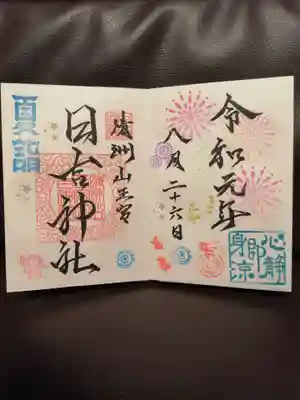 令和元年
八月二十六日
心静
即
身涼
濃洲山王宮
日吉神社
夏詣